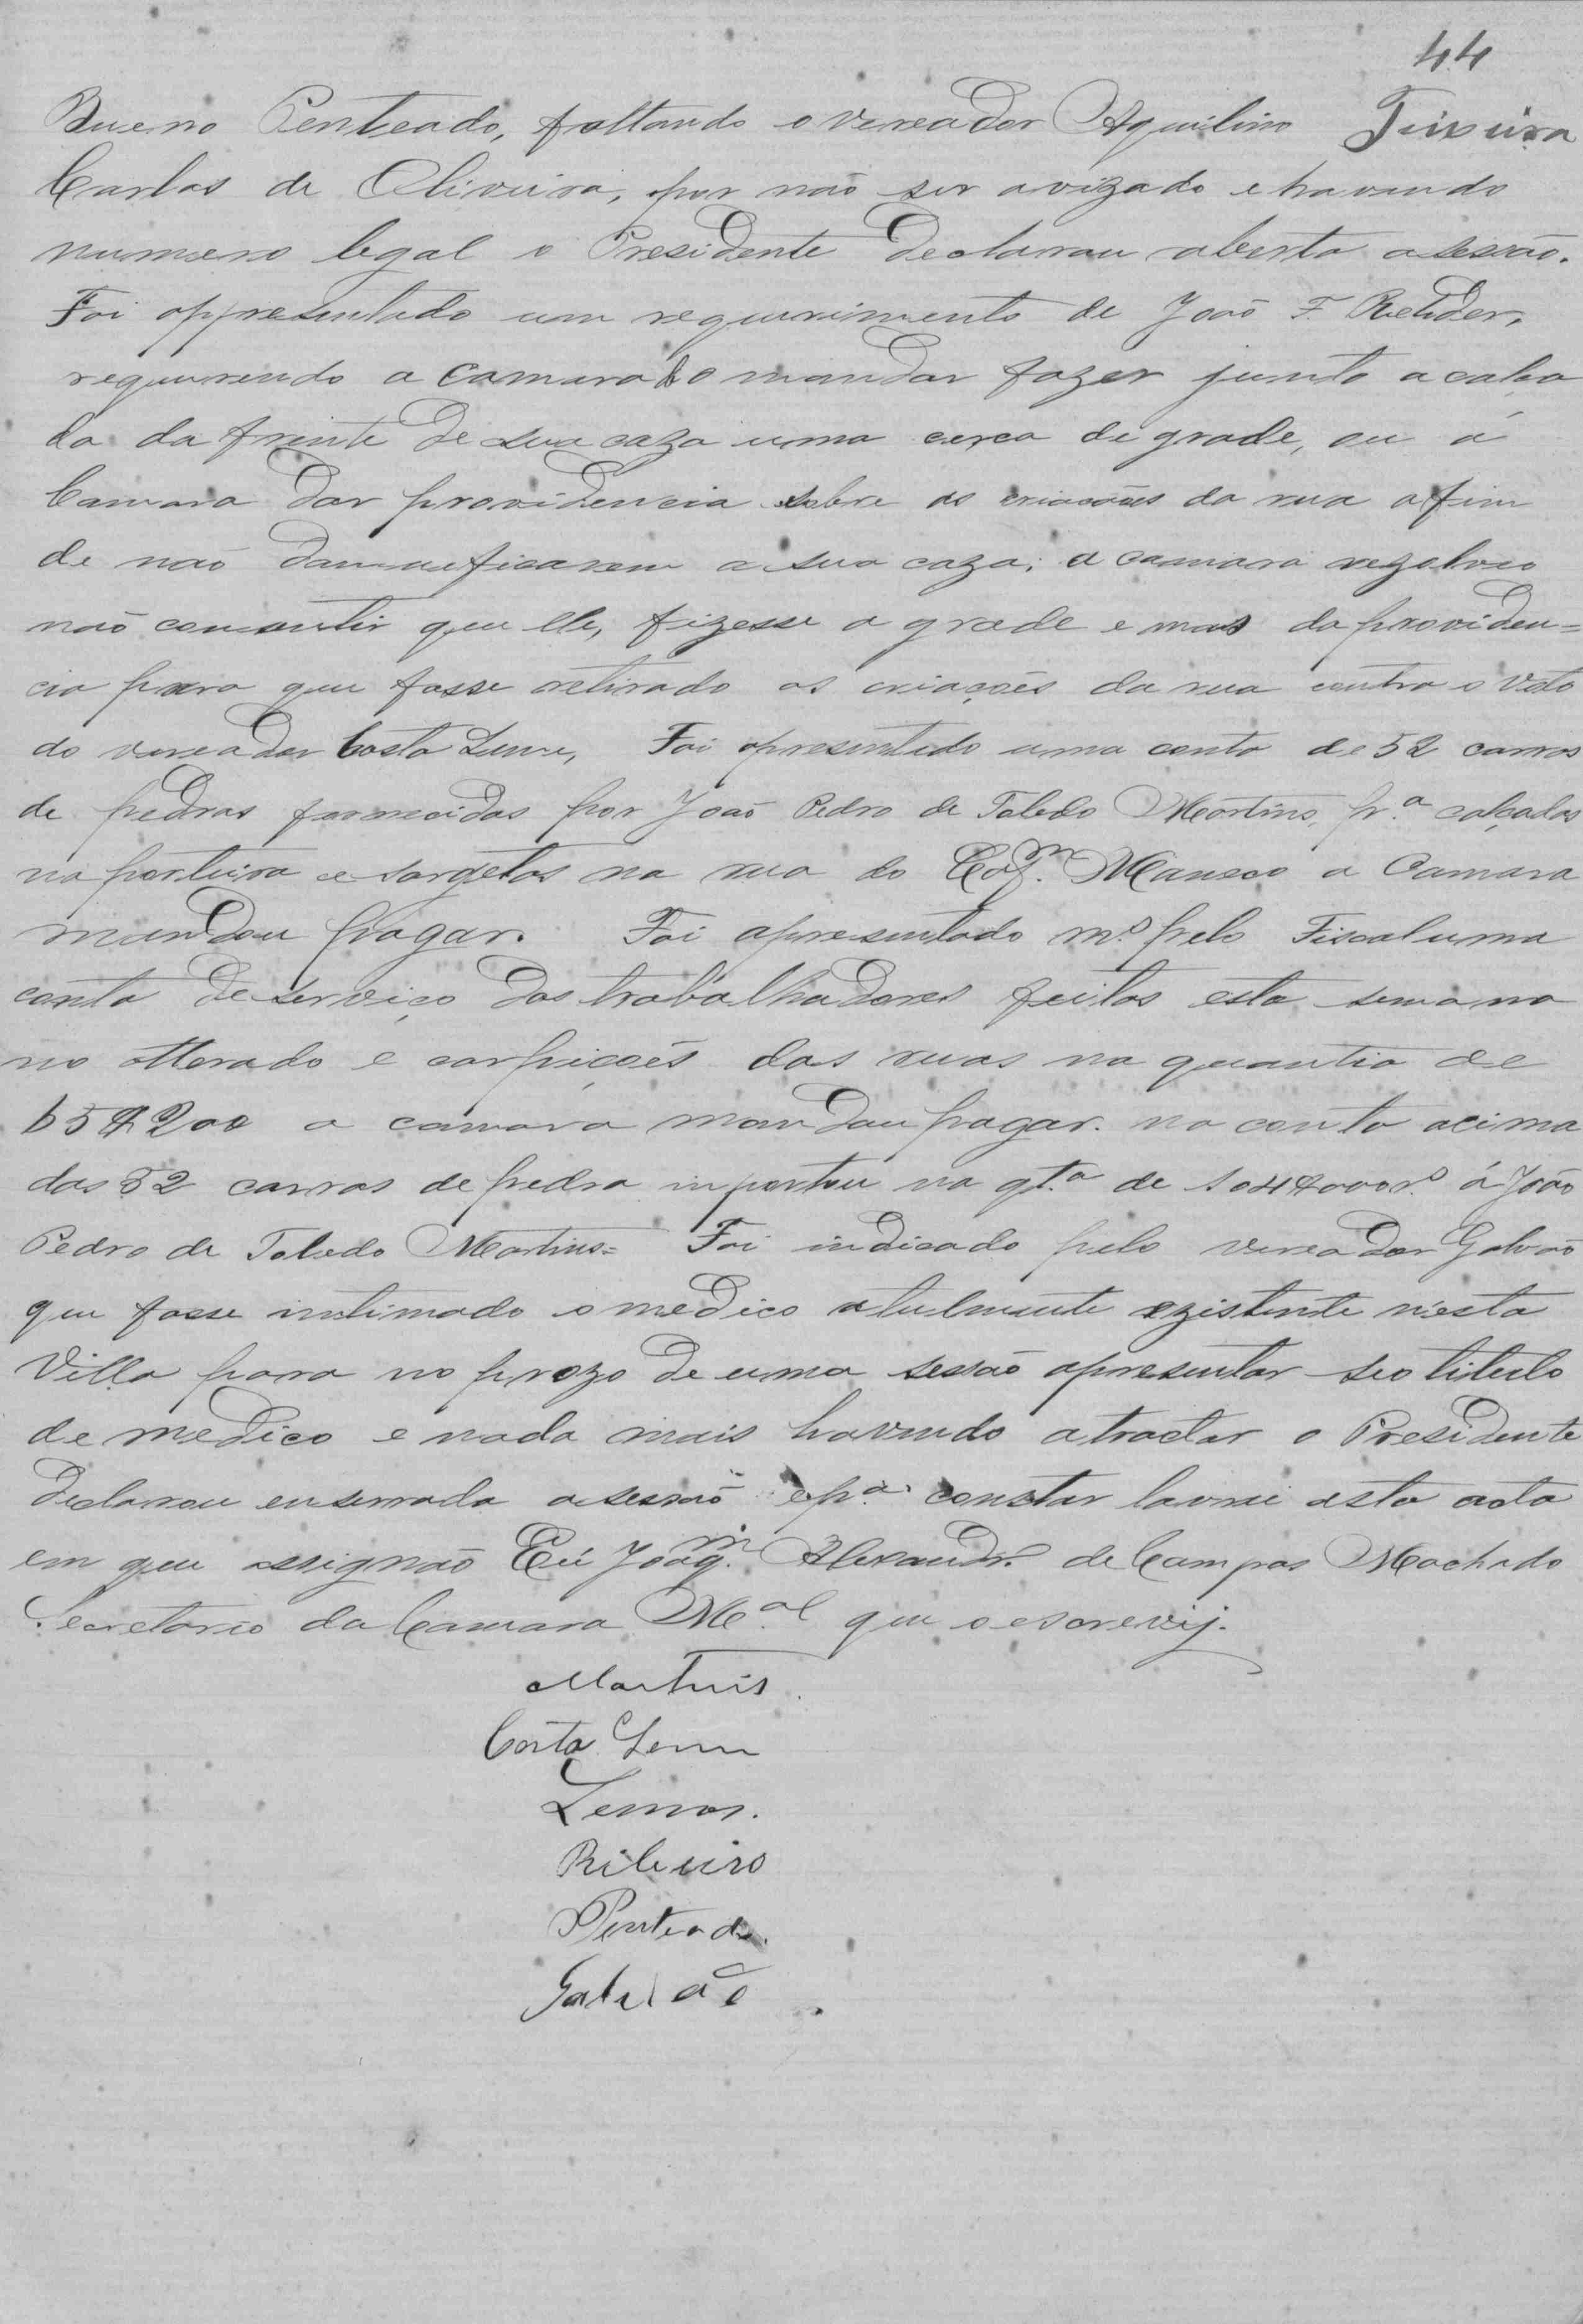 44
Bueno Penteado, faltando o vereador Aquilino Teixeira
Carlos de Oliveira, por não ser avizado e havendo
numero legal o Presidente declarou aberta a sessão.
Foi appresentado um requerimento de João F.
requerendo a camara mandar fazer junto a calça
da da frente de sua caza uma cerca de grade, ou á
Camara dar providencia sobre as criacoões da rua afim
de não damneficarem a sua caza; a camara rezolveo
não consentir que elle, fizesse a grade e mas da providen=
cia para que fosse retirado as criações da rua contra o voto
do vereador Costa Leme, Foi apresentido uma conta de 52 carros
de pedras fornecidas por João Pedro de Toledo Martins, pr.ª calçadas
na porteira e sargetas na rua do Cap.m Manoco a Camara
mandou pagar. Foi apresentado m.º pelo Fiscal uma
conta de serviço dos trabalhadores feitos esta semana
no atterado e carpições das ruas na quantia de
65$200 a camara mandou pagar. na conta acima
das 52 carros de pedra importou na qt.ª de 104$000r.s á João
Pedro de Toledo Martins= Foi indicado pelo vereador Galvão
que fosse intimado o medico atulmente ezistente n'esta
Villa para no prazo de uma sessão apresentar seo titulo
de medico e nada mais havendo a tractar o Presidente
declarou enserrada a sessão e p.ª constar lavrei esta acta
em que assignão Eu Joaq.m Alexandr.e de Campos Machado
Secretario da Camara M.al que o escrevij.
Martins.
Costa Leme
Lemos.
Ribeiro
Penteado.
Galvão.